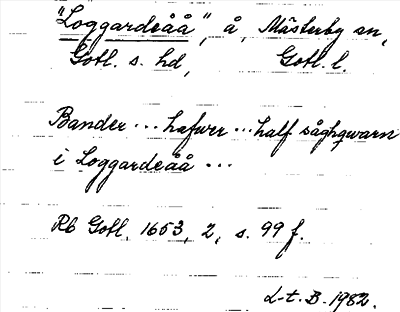 "Loggardeåå", å, Mästerby sn,
Gotl. s. hd, Gotl. l.
Bander ... hafwer ... half såghqwarn
i Loggardeåå ...
Rb Gotl. 1653, 2, s. 99 f.
L-t. B. 1982.